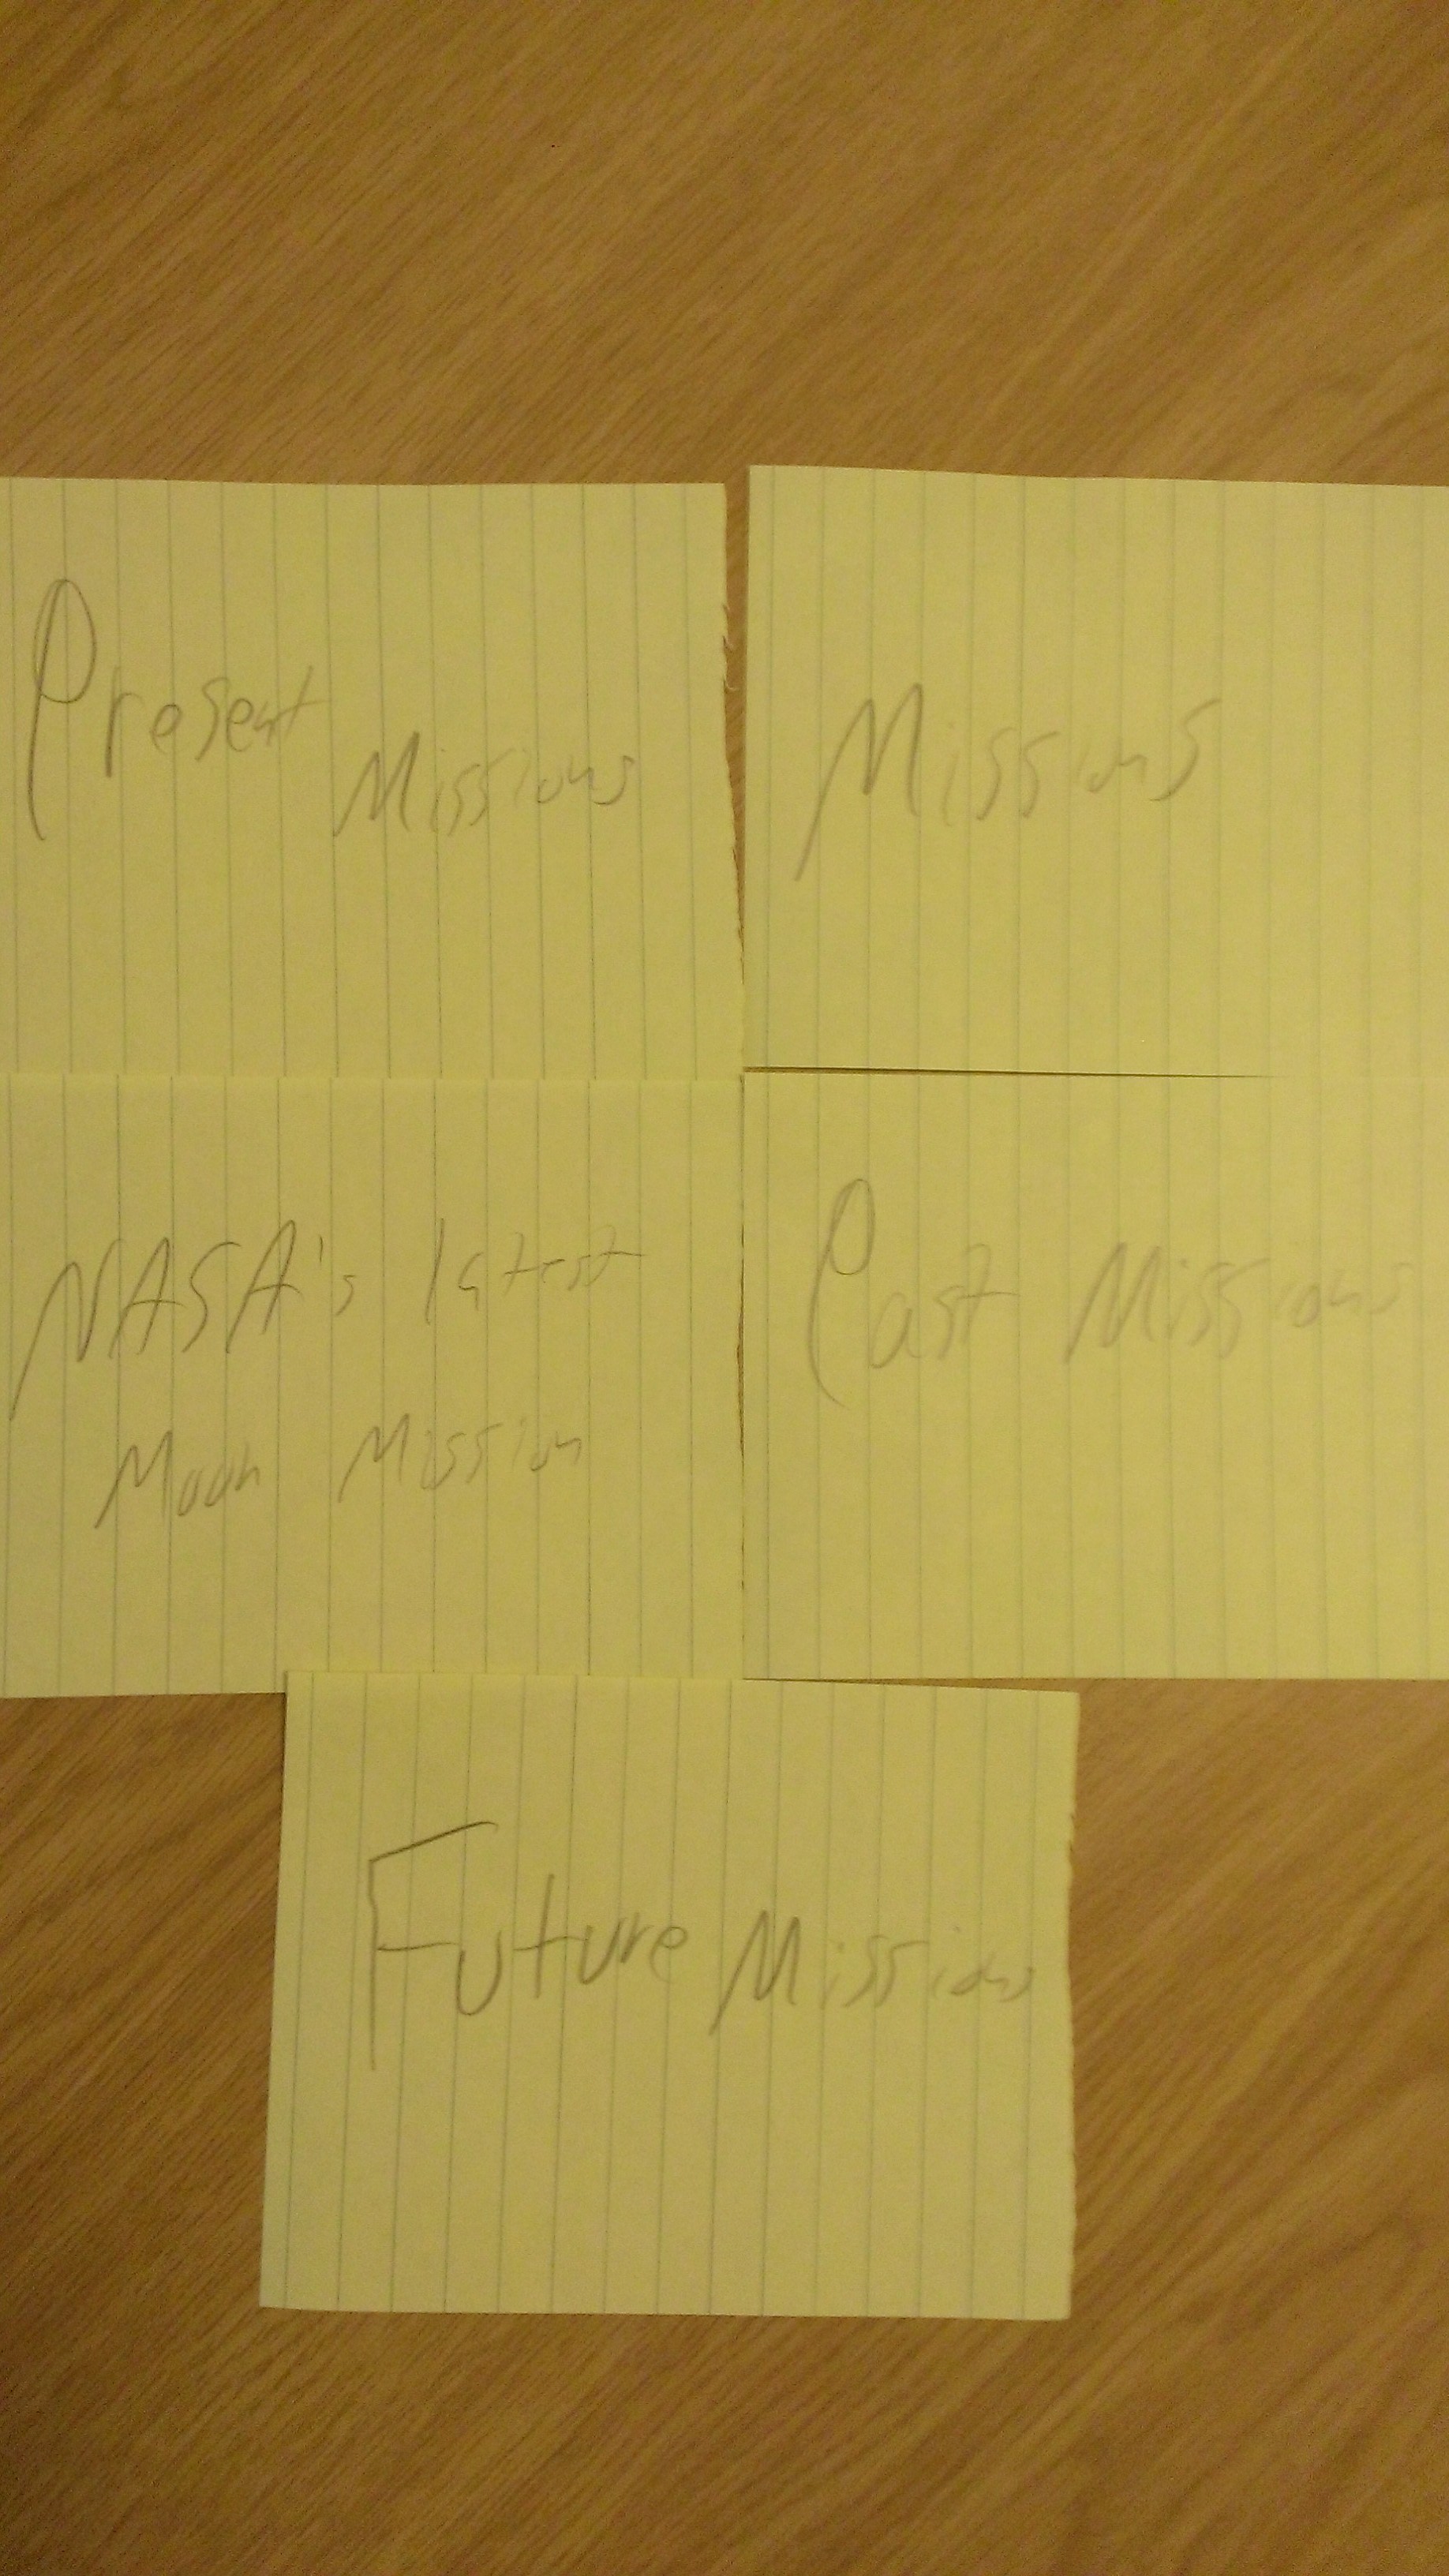 Present
Missions
Missions
NASA's latest
Moon Mission
Past Missions
Future Missions